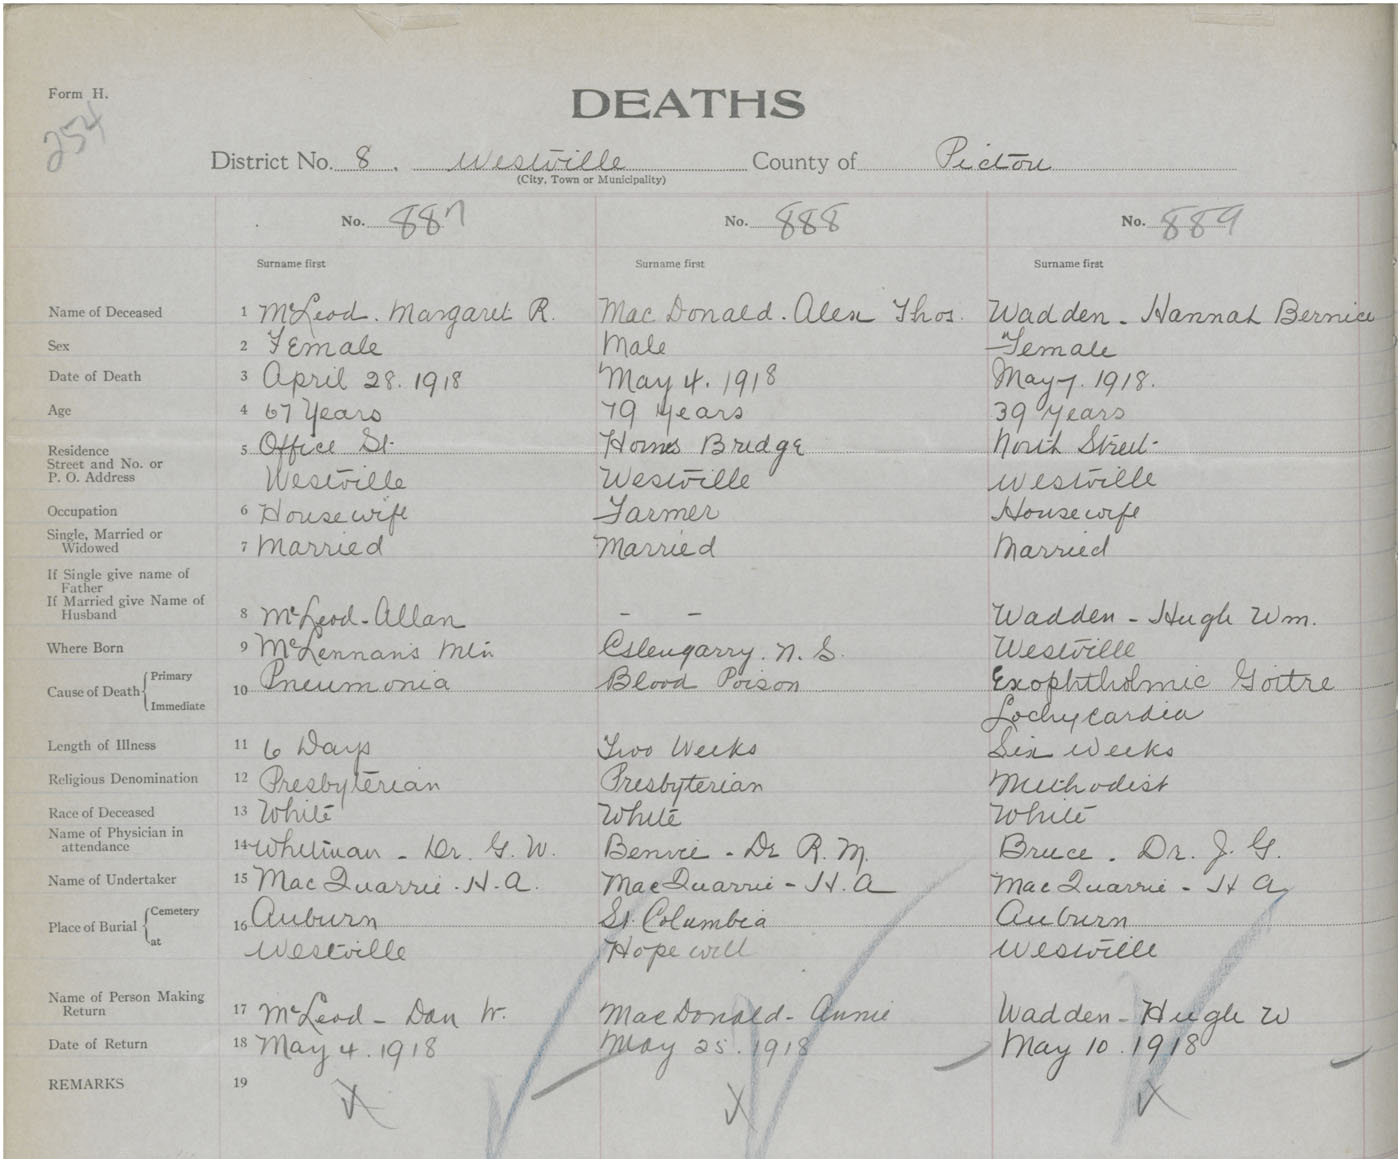 Form H.
254
DEATHS
District No. 8. Westville County of Pictou
(City, Town or Municipality)
No. 887 No. 888 No. 889
Surname first Surname first Surname first
Name of Deceased 1 McLeod. Margaret R. MacDonald. Alex Thos. Wadden - Hannah Bernice
Sex 2 Female Male Female
Date of Death 3 April 28. 1918 May 4. 1918 May 7. 1918.
Age 4 67 Years 79 Years 39 Years
Residence 5 Office St Horns Bridge North Street
Street and No. or
P. O. Address Westville Westville Westville
Occupation 6 Housewife Farmer Housewife
Single, Married or
Widowed 7 Married Married Married
If Single give name of
Father
If Married give Name of
Husband 8 McLeod - Allan - - Wadden - Hugh Wm.
Where Born 9 McLennan's Mtn Glengarry. N. S. Westville
Cause of Death Primary 10 Pneumonia Blood Poison Exophtholmic Goitre
Immediate Lochycardia
Length of Illness 11 6 Days Two Weeks Six Weeks
Religious Denomination 12 Presbyterian Presbyterian Methodist
Race of Deceased 13 White White White
Name of Physician in
attendance 14 Whitman - Dr. G. W. Benvie - Dr R. M. Bruce. Dr. J. G.
Name of Undertaker 15 MacQuarrie. H. A. MacQuarrie - H. A MacQuarrie - H A
Place of Burial Cemetery 16 Auburn St. Columbia Auburn
at Westville Hopewell Westville
Name of Person Making
Return 17 McLeod - Dan W. MacDonald - Annie Wadden - Hugh W
Date of Return 18 May 4. 1918 May 25. 1918 May 10. 1918
REMARKS 19